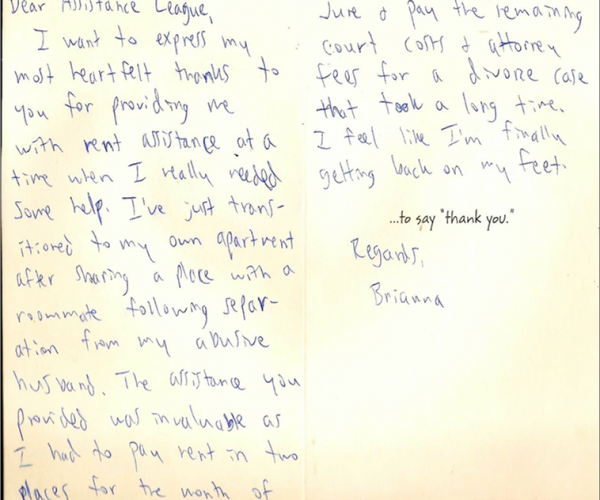 Dear Assistance League,
I want to express my
most heartfelt thanks to
you for providing me
with rent assistance at a
time when I really needed
some help. I've just trans-
itioned to my own apartment
after sharing a place with a
roommate following separ-
ation from my abusive
husband. The assistance you
provided was invaluable as
I had to pay rent in two
places for the month of
June & pay the remaining
court costs & attorney
fees for a divorce case
that took a long time.
I feel like I'm finally
getting back on my feet.
...to say "thank you."
Regards,
Brianna